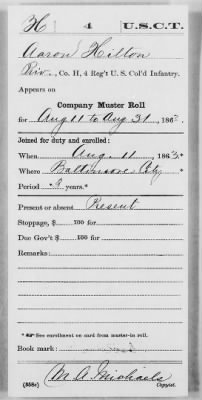 H 4 U.S.C.T.
Aaron Hilton
Priv., Co. H, 4 Reg't U. S. Col'd Infantry.
Appears on
Company Muster Roll
for Aug 11 to Aug 31, 1863.
Joined for duty and enrolled:
When Aug. 11, 1863.*
Where Baltimore City *
Period 3 years.*
Present or absent Present
Stoppage, $ 100 for
Due Gov't $ 100 for
Remarks:
* See enrollment on card from muster-in roll.
Book mark:
M. A. Michaels
(358c) Copyist.